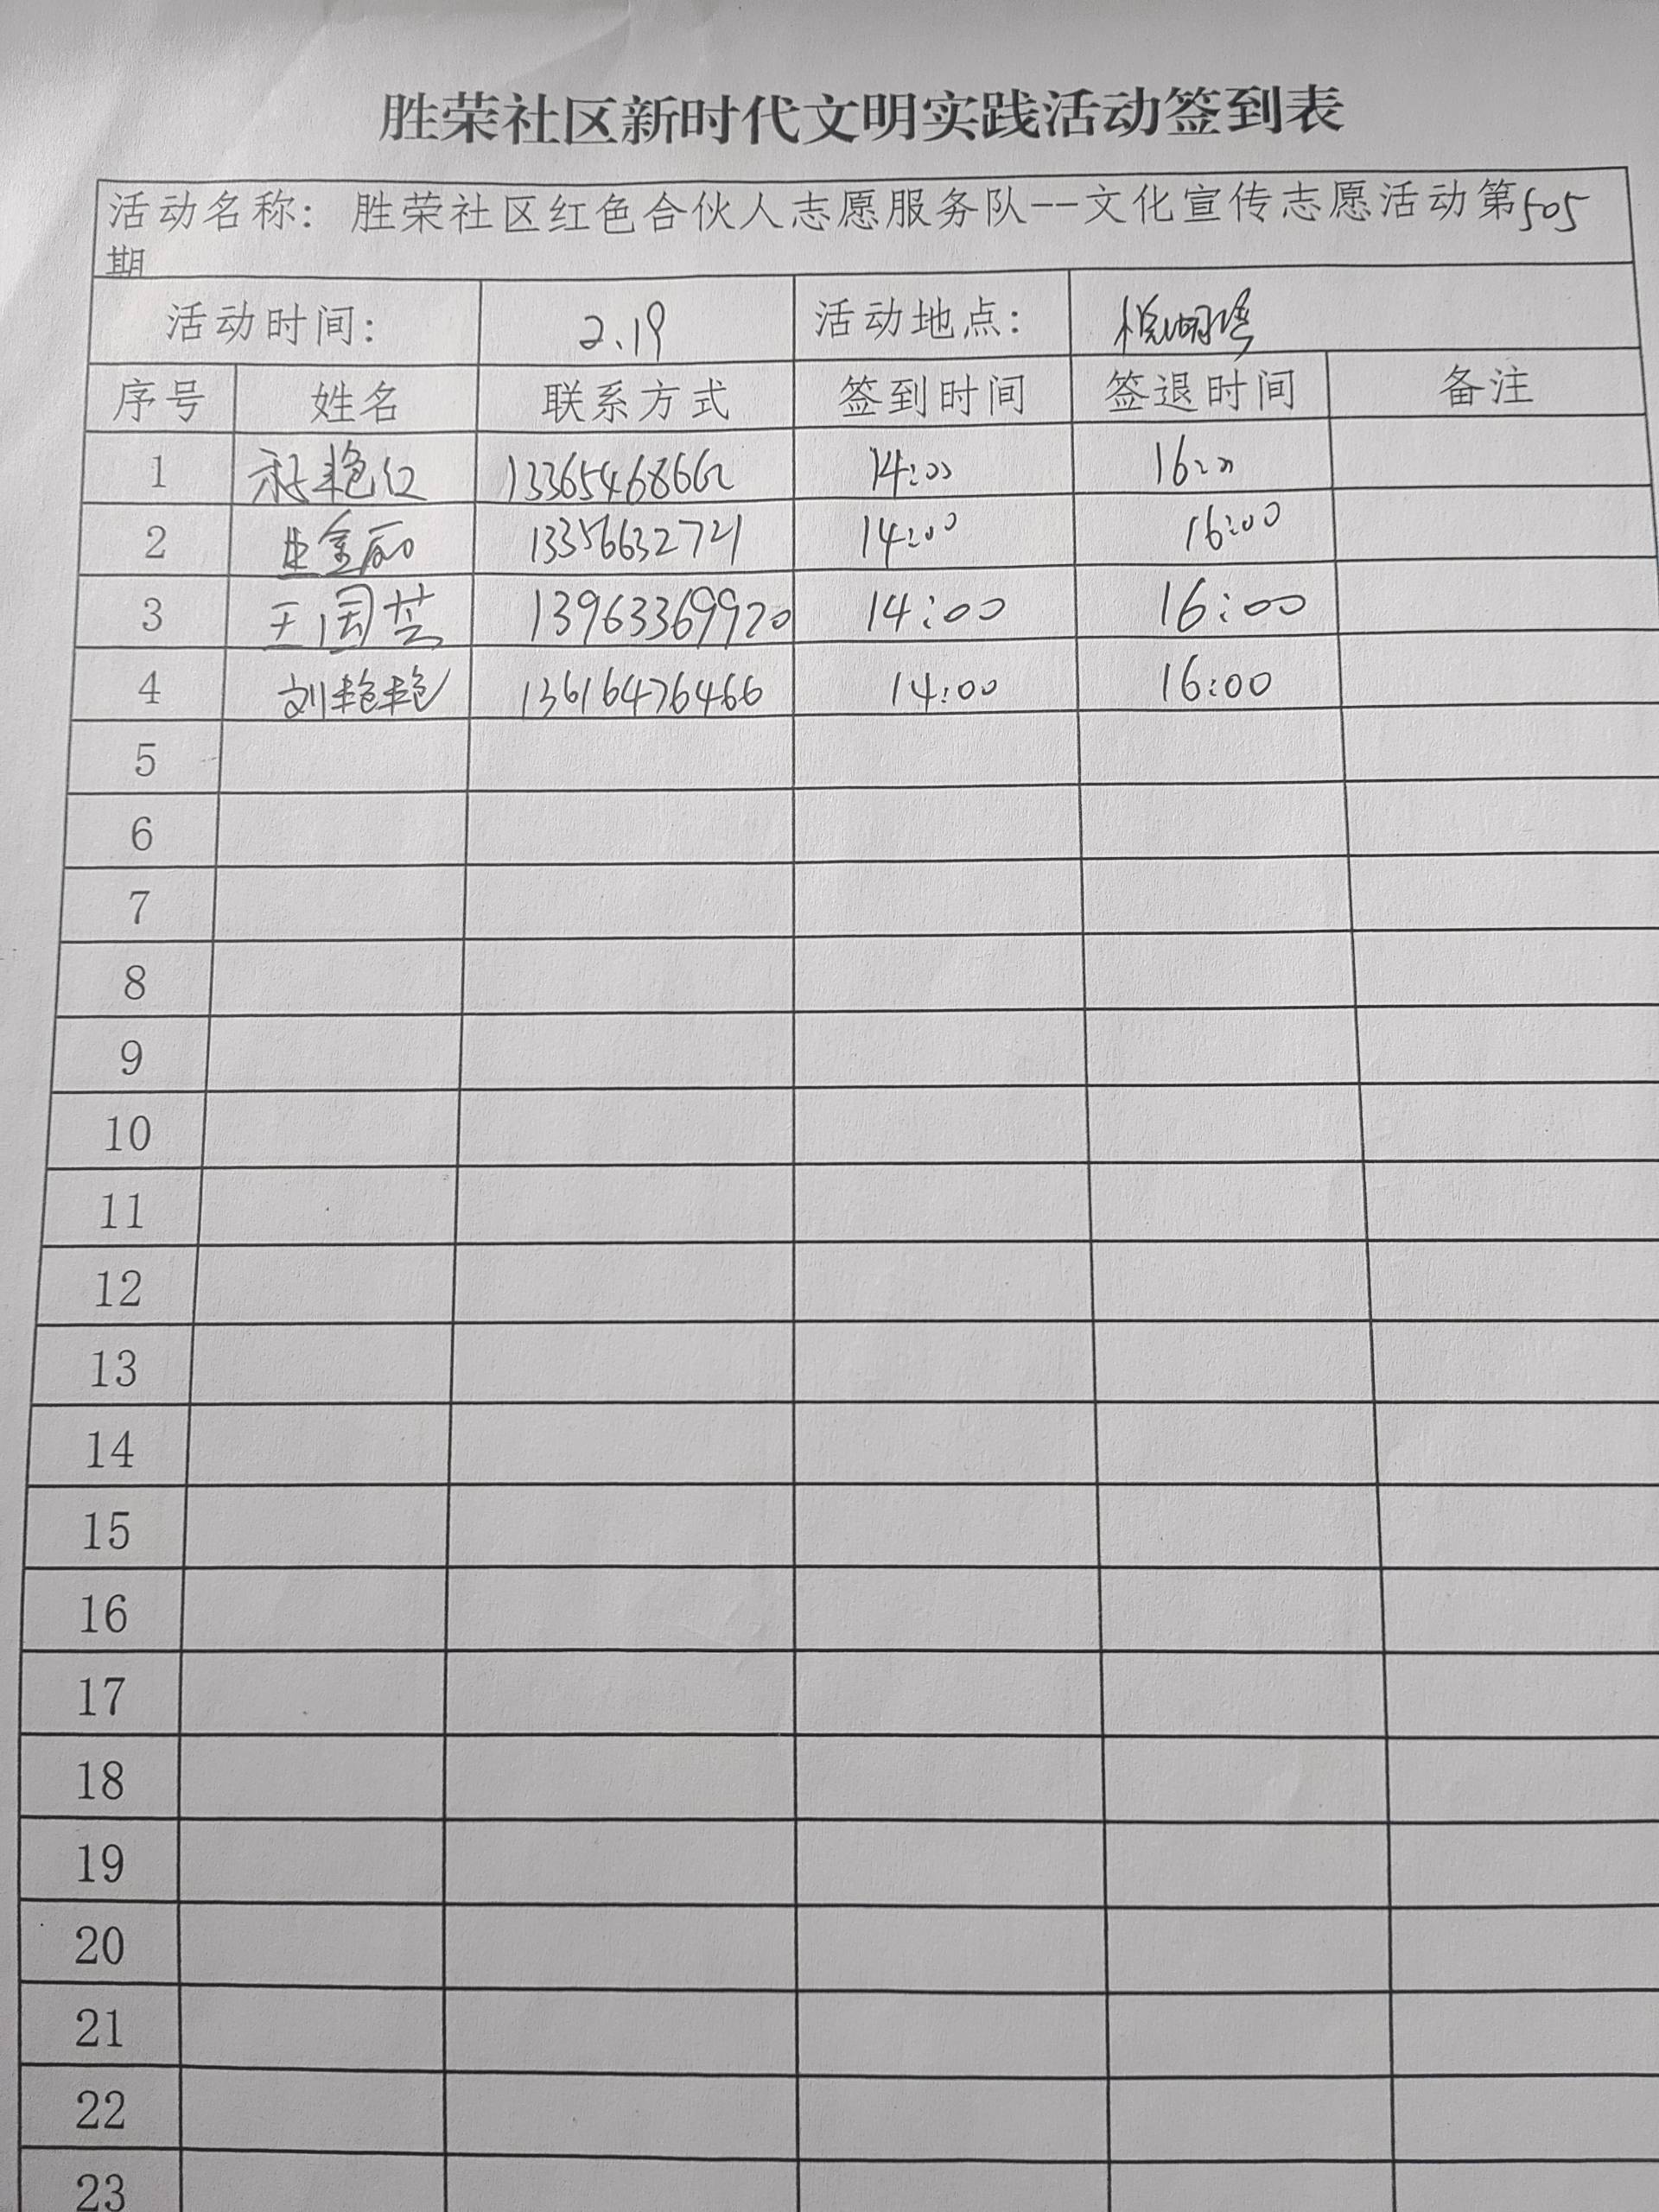 胜荣社区新时代文明实践活动签到表
活动名称：胜荣社区红色合伙人志愿服务队--文化宣传志愿活动第505
期
活动时间： 2.19 活动地点：
序号 姓名 联系方式 签到时间 签退时间 备注
1 艳红 13365468662 14:00 16:00
2 金丽 13356632721 14:00 16:00
3 王国芸 13963369920 14:00 16:00
4 刘艳艳 13616476466 14:00 16:00
5
6
7
8
9
10
11
12
13
14
15
16
17
18
19
20
21
22
23